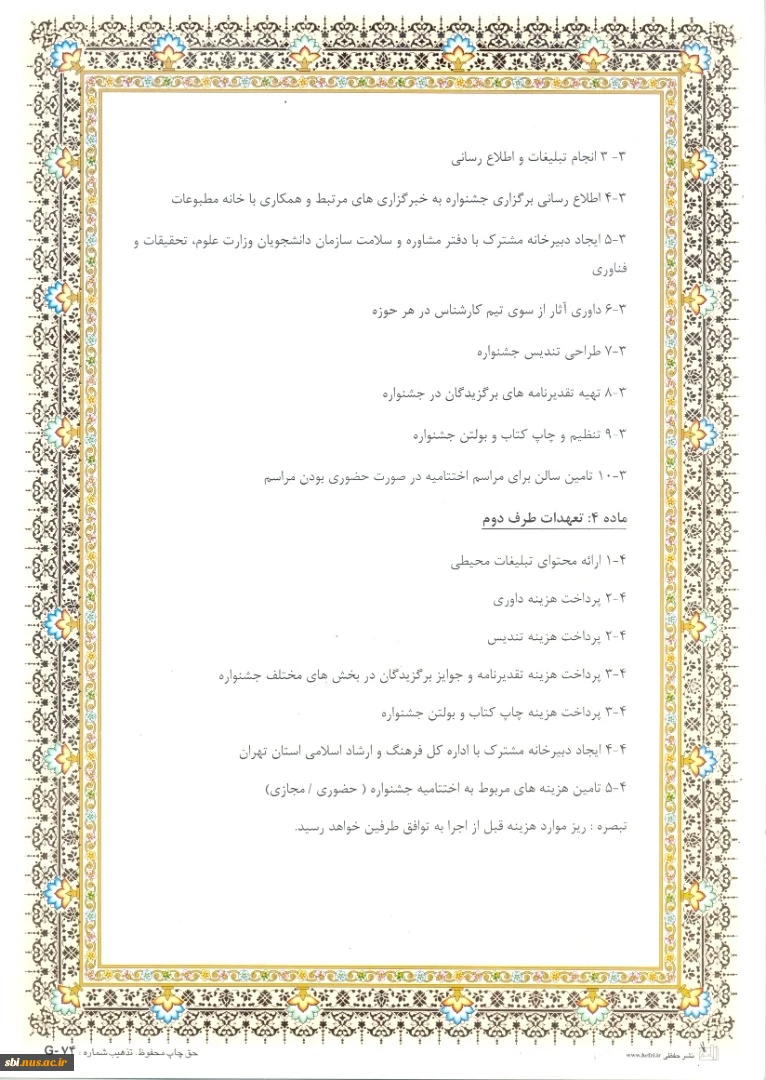 ۳- ۳ انجام تبلیغات و اطلاع رسانی
۴-۳ اطلاع رسانی برگزاری جشنواره به خبرگزاری های مرتبط و همکاری با خانه مطبوعات
۵-۳ ایجاد دبیرخانه مشترک با دفتر مشاوره و سلامت سازمان دانشجویان وزارت علوم، تحقیقات و
فناوری
۶-۳ داوری آثار از سوی تیم کارشناس در هر حوزه
۷-۳ طراحی تندیس جشنواره
۸-۳ تهیه تقدیرنامه های برگزیدگان در جشنواره
۹-۳ تنظیم و چاپ کتاب و بولتن جشنواره
۱۰-۳ تامین سالن برای مراسم اختتامیه در صورت حضوری بودن مراسم
ماده ۴: تعهدات طرف دوم
۱-۴ ارائه محتوای تبلیغات محیطی
۲-۴ پرداخت هزینه داوری
۲-۴ پرداخت هزینه تندیس
۳-۴ پرداخت هزینه تقدیرنامه و جوایز برگزیدگان در بخش های مختلف جشنواره
۳-۴ پرداخت هزینه چاپ کتاب و بولتن جشنواره
۴-۴ ایجاد دبیرخانه مشترک با اداره کل فرهنگ و ارشاد اسلامی استان تهران
۵-۴ تامین هزینه های مربوط به اختتامیه جشنواره ( حضوری / مجازی)
تبصره : ریز موارد هزینه قبل از اجرا به توافق طرفین خواهد رسید.
نشر حفظی www.hefzi.ir
حق چاپ محفوظ. تذهیب شماره : G-۷۴
sbi.nus.ac.ir